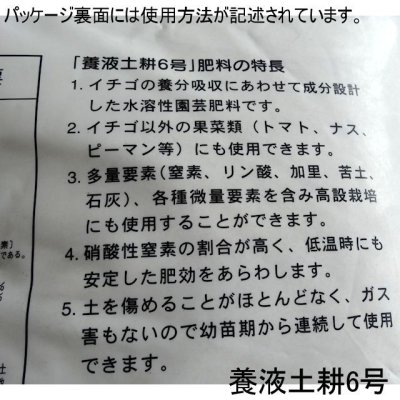 パッケージ裏面には使用方法が記述されています。
「養液土耕6号」肥料の特長
1. イチゴの養分吸収にあわせて成分設計
した水溶性園芸肥料です。
2. イチゴ以外の果菜類（トマト、ナス、
ピーマン等）にも使用できます。
3. 多量要素(窒素、リン酸、加里、苦土、
石灰)、各種微量要素を含み高設栽培
にも使用することができます。
4. 硝酸性窒素の割合が高く、低温時にも
安定した肥効をあらわします。
5. 土を傷めることがほとんどなく、ガス
害もないので幼苗期から連続して使用
できます。
素〕
である。
%
%
土
養液土耕6号